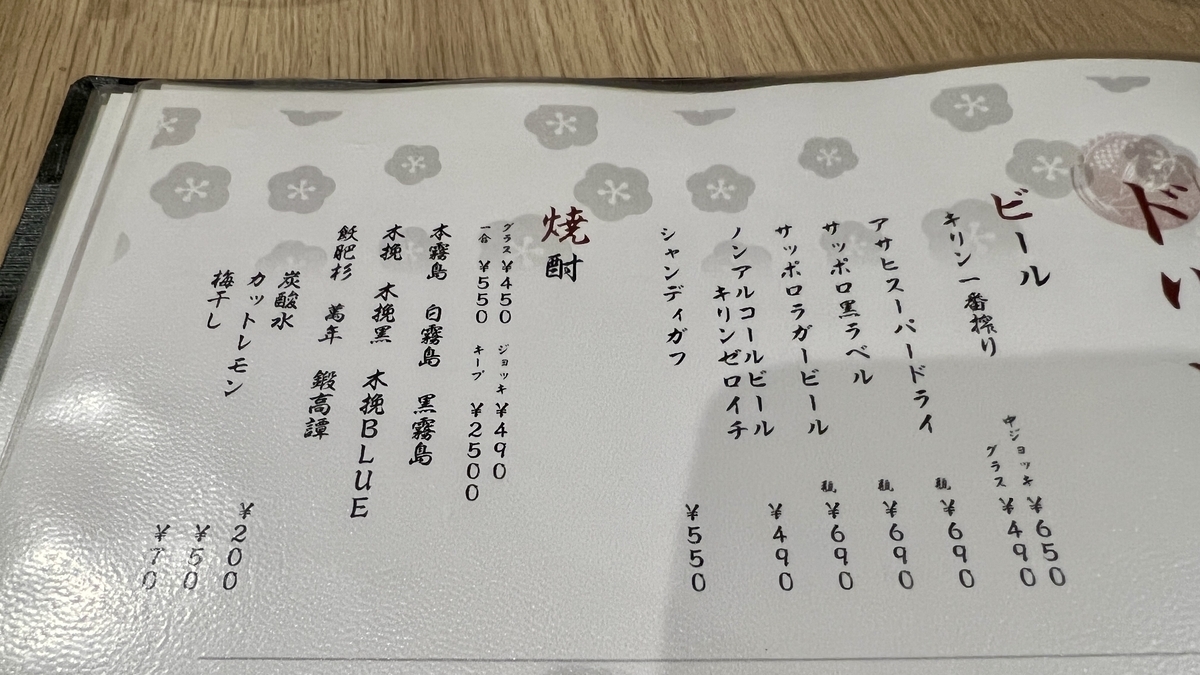 ドリ
ビール
キリン一番搾り
中ジョッキ ¥650
グラス ¥490
アサヒスーパードライ 瓶 ¥690
サッポロ黒ラベル 瓶 ¥690
サッポロラガービール 瓶 ¥690
ノンアルコールビール
キリンゼロイチ ¥490
シャンディガフ ¥550
焼酎
グラス ¥450 ジョッキ ¥490
一合 ¥550 キープ ¥2500
本霧島 白霧島 黒霧島
木挽 木挽黒 木挽BLUE
飫肥杉 萬年 鍛高譚
炭酸水 ¥200
カットレモン ¥50
梅干し ¥70